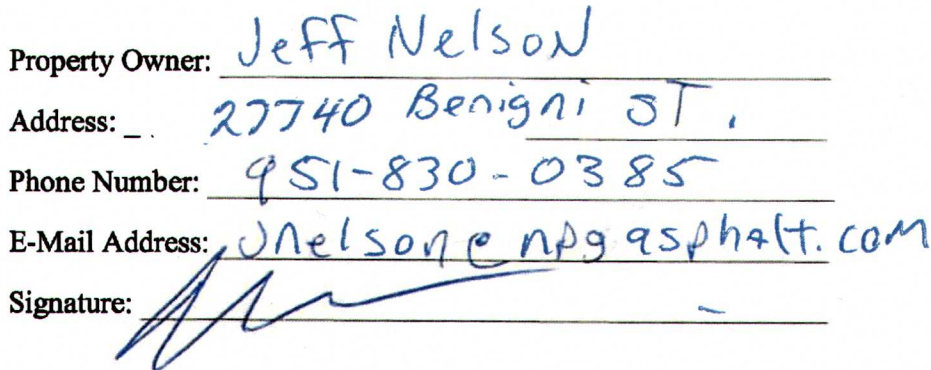 Property Owner: Jeff Nelson
Address: 27740 Benigni ST.
Phone Number: 951-830-0385
E-Mail Address: Jnelson@npgasphalt.com
Signature: